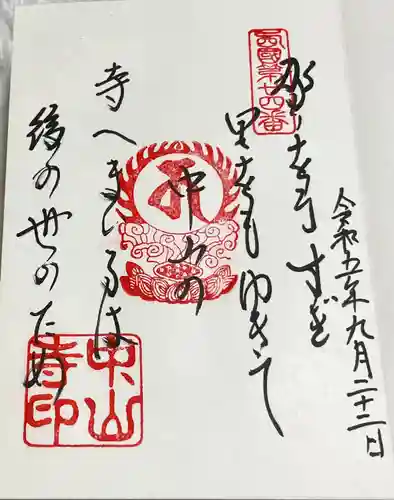 令和五年九月二十二日
西國第廿四番
野をもすぎ
里をもゆきて
中山の
寺へまいるは
後の世のため
中山寺印